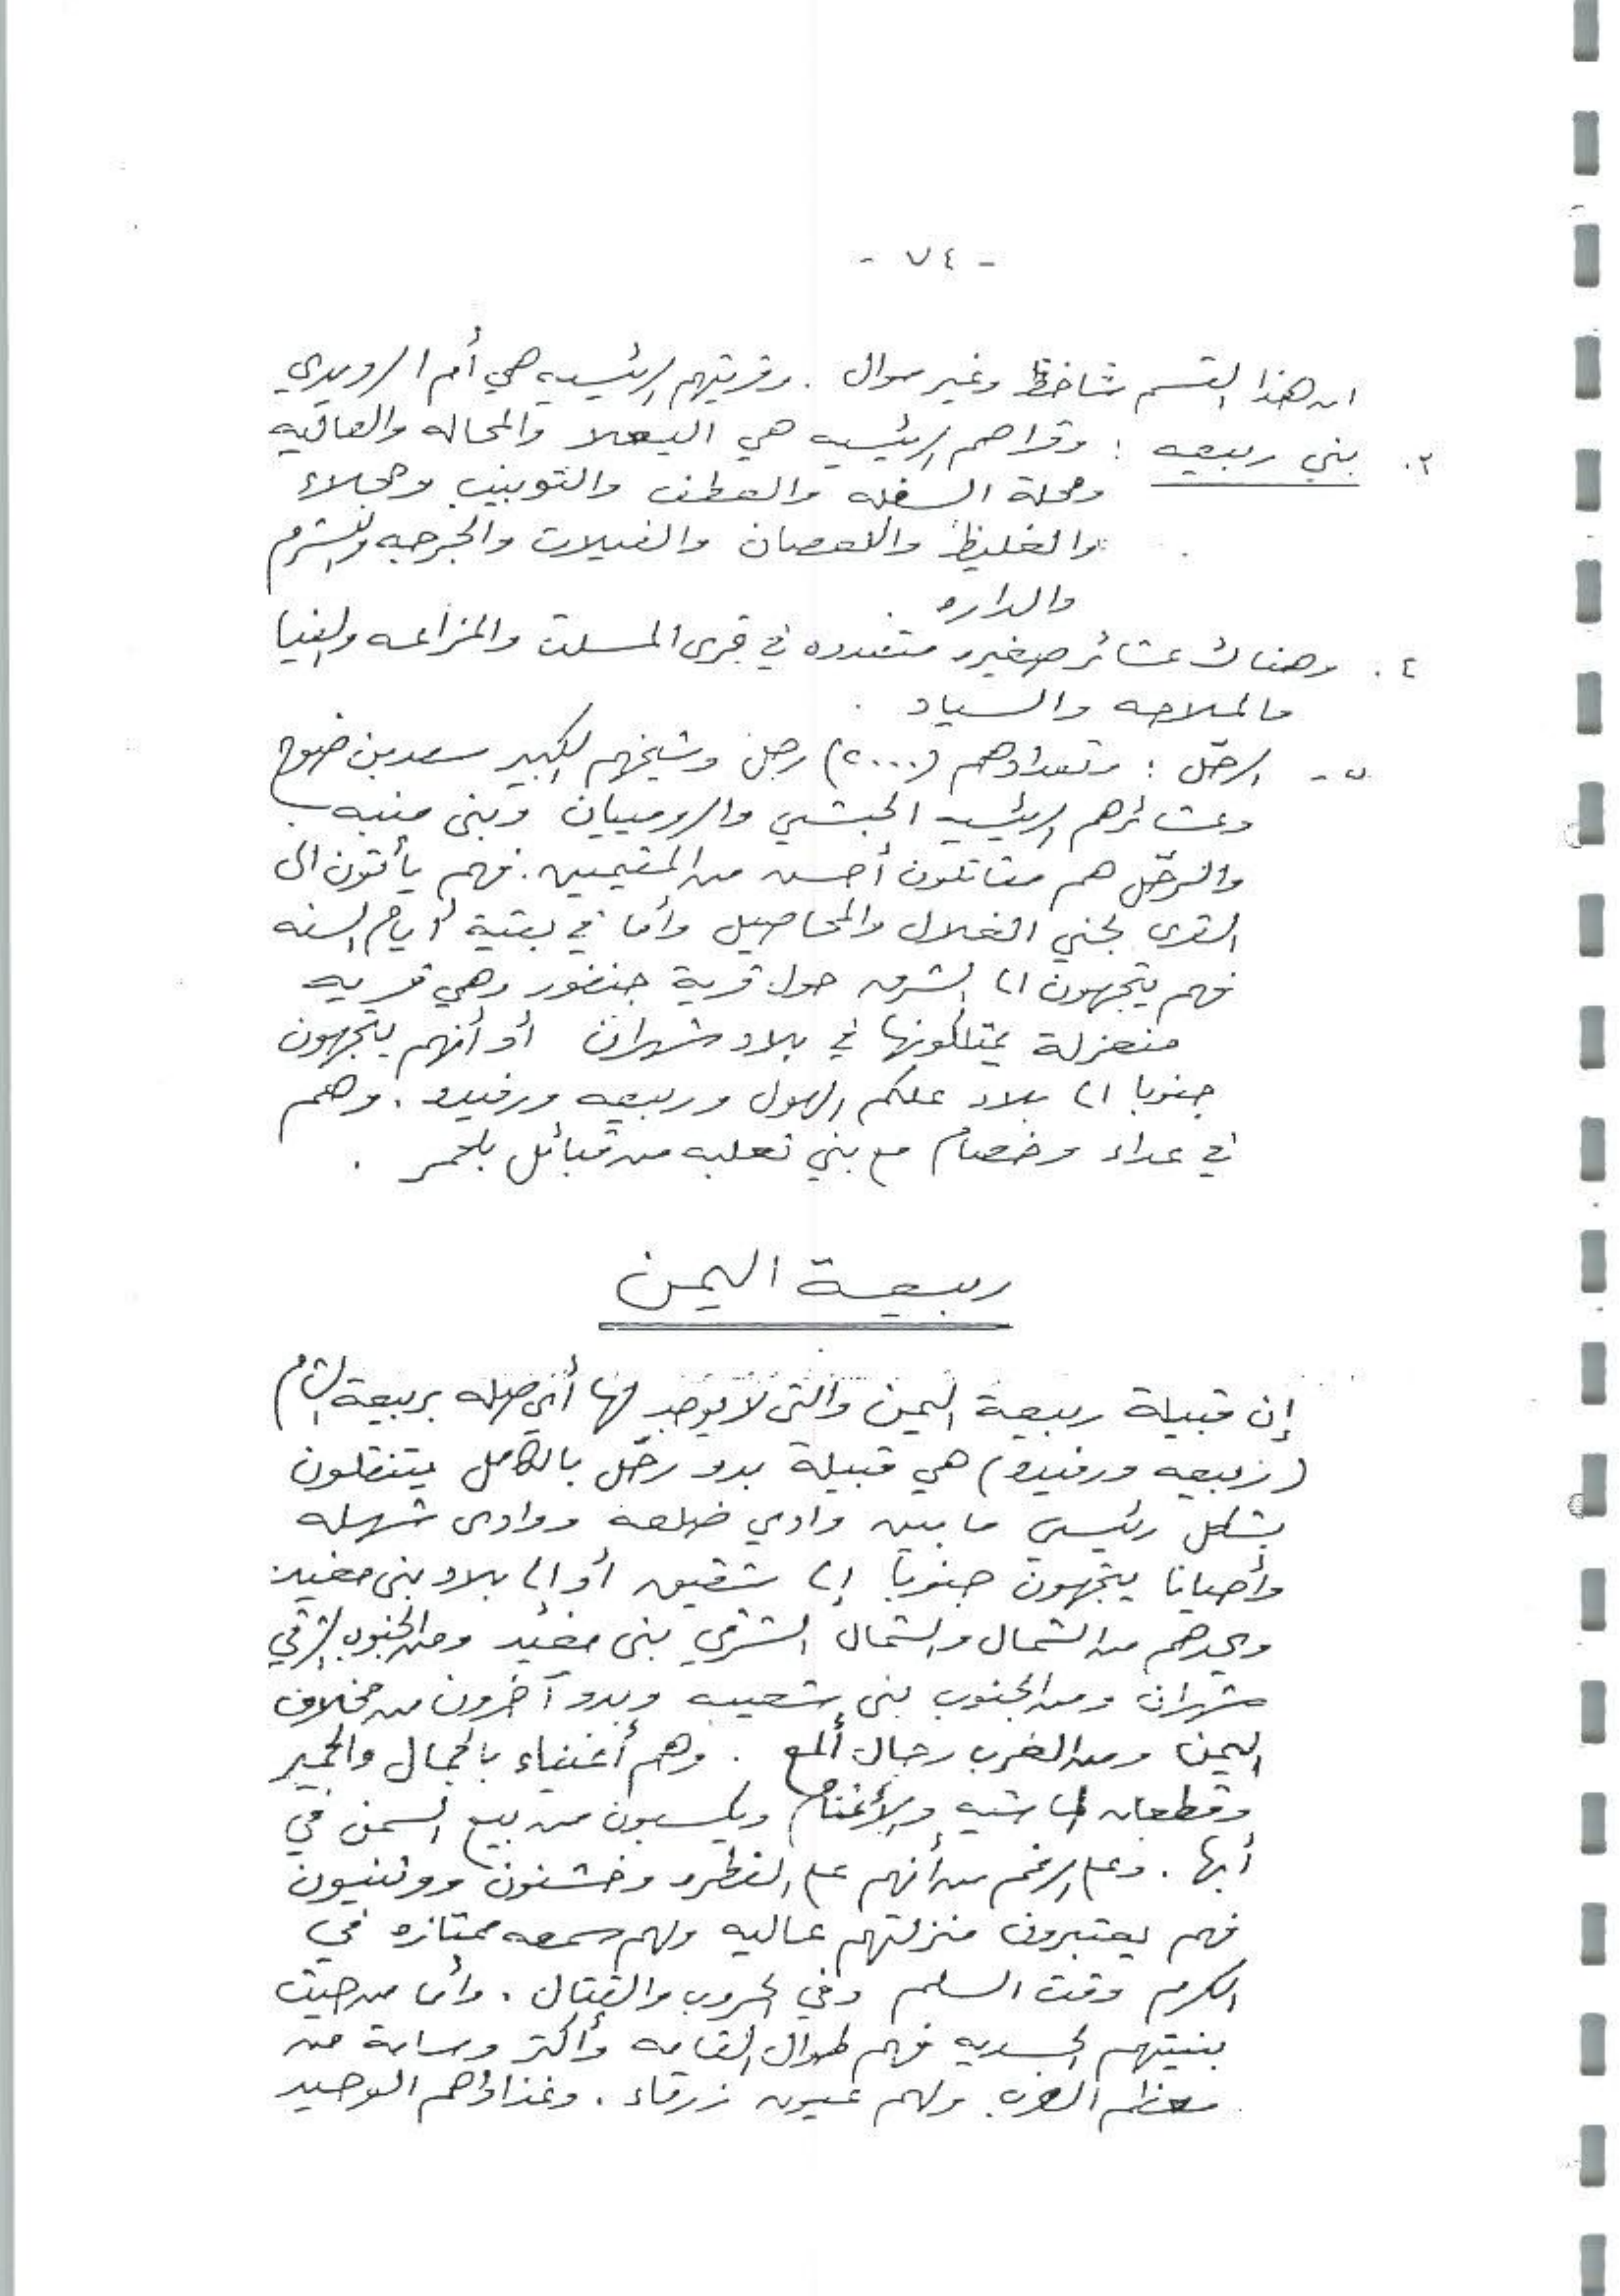 - ٧٤ -
ان هذا القسم شاخظ وغير موال . وقريتهم الرئيسيه هي أم الرويدي
٣. بني ربيعه : وقراهم الرئيسيه هي اليعلا والمحاله والعاقيه
ومحلة السفله والعطف والثويب وحجلاء
والغليظ واللعصان والفيلات والجرحبه والشرم
والداره .
٤ . وهناك عشائر صغيره متعدده في قرى المسلت والمزاعه والفيا
والملاحه والسياد .
٥ - الرحّل : وتعدادهم (٢٠٠٠) رجل وشيخهم الكبير سعد بن ضبوح
وعشائرهم الرئيسيه الحبشي والروميان وبني منبه
والرحّل هم مقاتلون أحسن من المقيمين . فهم يأتون الى
القرى لجني الغلال والمحاصيل وأما في بقية أيام السنه
فهم يتجهون الى الشرق حول قرية جنفور وهي قريه
منعزلة يمتلكونها في بلاد شهران أو أنهم يتجهون
جنوبا الى بلاد علكم الهول وربيعه ورفيده . وهم
في عداء وخصام مع بني ثعلبه من قبائل بلحمر .
ربيعة اليمن
إن قبيلة ربيعة اليمن والتي لا يوجد لها أي صله بربيعة الشام
(ربيعه ورفيده) هي قبيلة بدو رحّل بالكامل يتنقلون
بشكل رئيسي ما بين وادي ضلعه ووادى شهله
وأحيانا يتجهون جنوباً إلى شقيق أو إلى بلاد بنى مغيد
ويحدهم من الشمال والشمال الشرقي بنى مغيد ومن الجنوب الشرقي
شهران ومن الجنوب بنى شعبه وبدو آخرون من مخلاف
اليمن ومن الغرب رجال ألمع . وهم أغنياء بالجمال والحمير
وقطعان الماشيه والأغنام ويكسبون من بيع السمن في
أبها . وعلى الرغم من أنهم على الفطره وخشنون ووثنيون
فهم يعتبرون منزلتهم عاليه ولهم سمعه ممتازه في
الكرم وقت السلم وفي الحروب والقتال . وأما من حيث
بنيتهم الجسديه فهم طوال القامه وأكثر وسامة من
معظم العرب ولهم عيون زرقاء . وغذاؤهم الوحيد